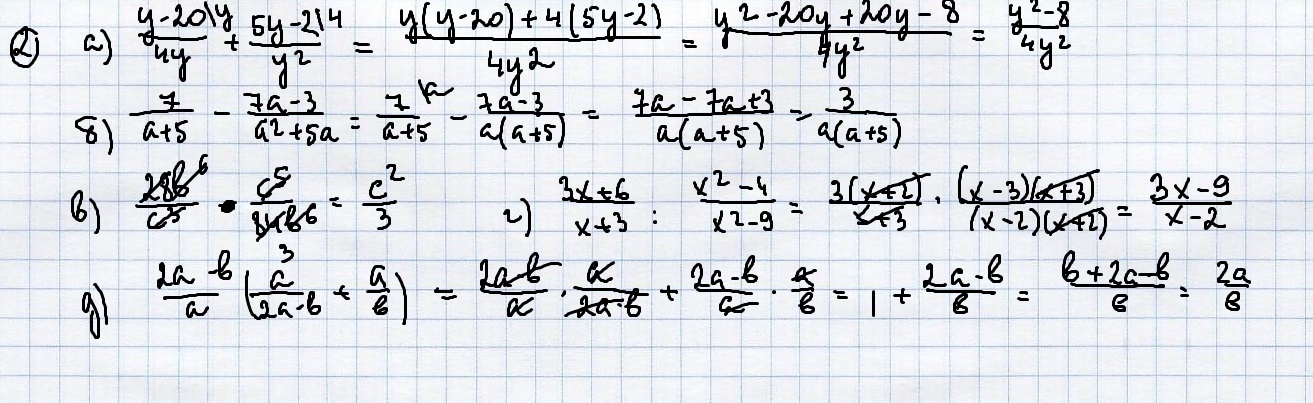 ② а) (y-20\y)/(4y) + (5y-2\4)/(y²) = (y(y-20)+4(5y-2))/(4y2) = (y²-20y+20y-8)/(4y²) = (y²-8)/(4y²)
б) 7/(a+5) - (7a-3)/(a²+5a) = 7\a/(a+5) - (7a-3)/(a(a+5)) = (7a-7a+3)/(a(a+5)) = 3/(a(a+5))
в) = c²/3 г) (3x+6)/(x+3) : (x²-4)/(x²-9) = 3(x+2)/(x+3) · (x-3)(x+3)/((x-2)(x+2)) = (3x-9)/(x-2)
д) (2a-b)/a (a/(2a-b) + a/b) = (2a-b)/a · a/(2a-b) + (2a-b)/a · a/b = 1 + (2a-b)/b = (b+2a-b)/b = 2a/b